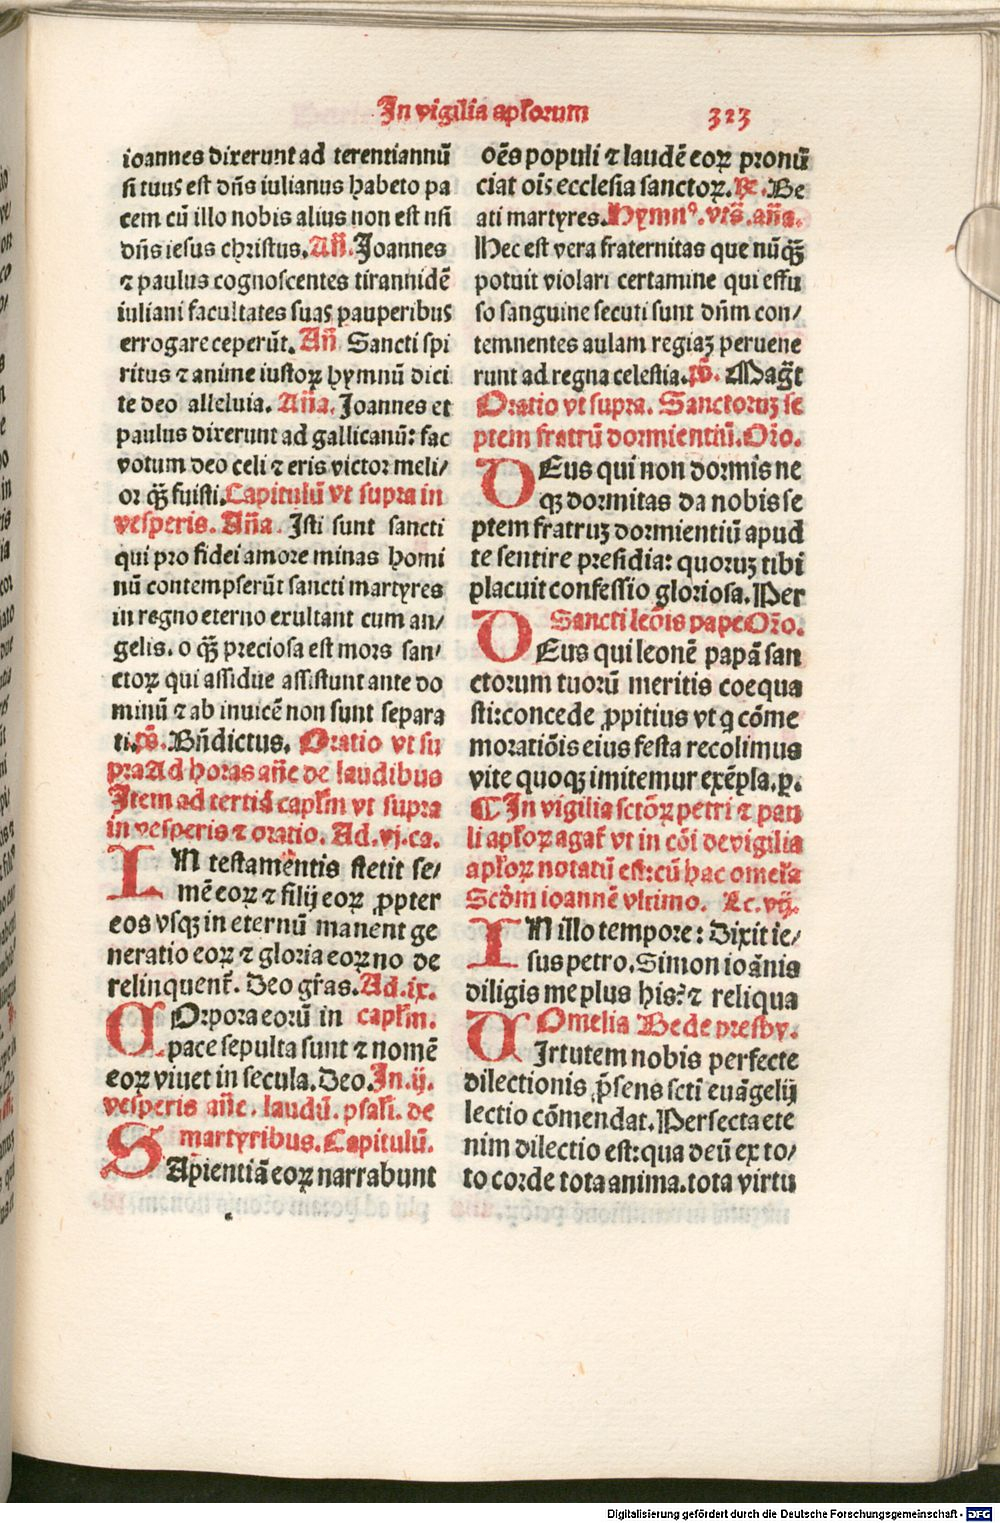 In vigilia apłorum 323
ioannes dixerunt ad terentiannū
si tuus est dn̄s iulianus habeto pa
cem cū illo nobis alius non est nisi
dn̄s iesus christus. Añ. Joannes
⁊ paulus cognoscentes tirannidē
iuliani facultates suas pauperibus
errogare ceperūt. Añ Sancti spi
ritus ⁊ anime iustoꝝ hymnū dici
te deo alleluia. Aña. Joannes et
paulus dixerunt ad gallicanū: fac
votum deo celi ⁊ eris victor meli/
or qȝ̄ fuisti. Capitulū vt supra in
vesperis. Aña. Isti sunt sancti
qui pro fidei amore minas homi
nū contempserūt sancti martyres
in regno eterno exultant cum an/
gelis. o qȝ̄ preciosa est mors san/
ctoꝝ qui assidue assistunt ante do
minū ⁊ ab inuicē non sunt separa
ti. p̄s. Bn̄dictus. Oratio vt su
pra Ad horas añe de laudibus
Item ad tertiā capłm vt supra
in vesperis ⁊ oratio. Ad. vj. ca.
IN testamentis stetit se/
mē eoꝝ ⁊ filij eoꝝ ꝓpter
eos vsqȝ in eternū manent ge
neratio eoꝝ ⁊ gloria eoꝝ no de
relinquent᷑. Deo gr̄as. Ad. ix.
COrpora eorū in capłm.
pace sepulta sunt ⁊ nomē
eoꝝ viuet in secula. Deo. In. ij.
vesperis añe. laudū. psałi. de
martyribus. Capitulū.
SApientiā eoꝝ narrabunt
oēs populi ⁊ laudē eoꝝ pronū
ciat oīs ecclesia sanctoꝝ. ꝶ. Be
ati martyres. Hymnꝰ. vt̄s. aña.
Hec est vera fraternitas que nūqȝ̄
potuit violari certamine qui effu
so sanguine secuti sunt dn̄m con/
temnentes aulam regiaȝ peruene
runt ad regna celestia. p̄s. Magt̄
Oratio vt supra. Sanctoruȝ se
ptem fratrū dormientiū. Or̄o.
DEus qui non dormis ne
qȝ dormitas da nobis se
ptem fratruȝ dormientiū apud
te sentire presidia: quoruȝ tibi
placuit confessio gloriosa. Per
Sancti leōis pape Or̄o.
DEus qui leonē papā san
ctorum tuorū meritis coequa
sti: concede ꝓpitius vt q̇ cōme
moratiōis eius festa recolimus
vite quoqȝ imitemur exēpla. p.
¶ In vigilia sctōꝝ petri ⁊ pau
li apłoꝝ agat᷑ vt in cōi de vigilia
apłoꝝ notatū est: cū hac omełia
Scd̄m ioannē vltimo. Ac. vij.
IN illo tempore: Dixit ie/
sus petro. Simon ioānis
diligis me plus his? ⁊ reliqua
Omelia Bede presby.
VIrtutem nobis perfecte
dilectionis p̄sens scti euāgelij
lectio cōmendat. Perfecta ete
nim dilectio est: qua deū ex to/
to corde tota anima. tota virtu
Digitalisierung gefördert durch die Deutsche Forschungsgemeinschaft - DFG